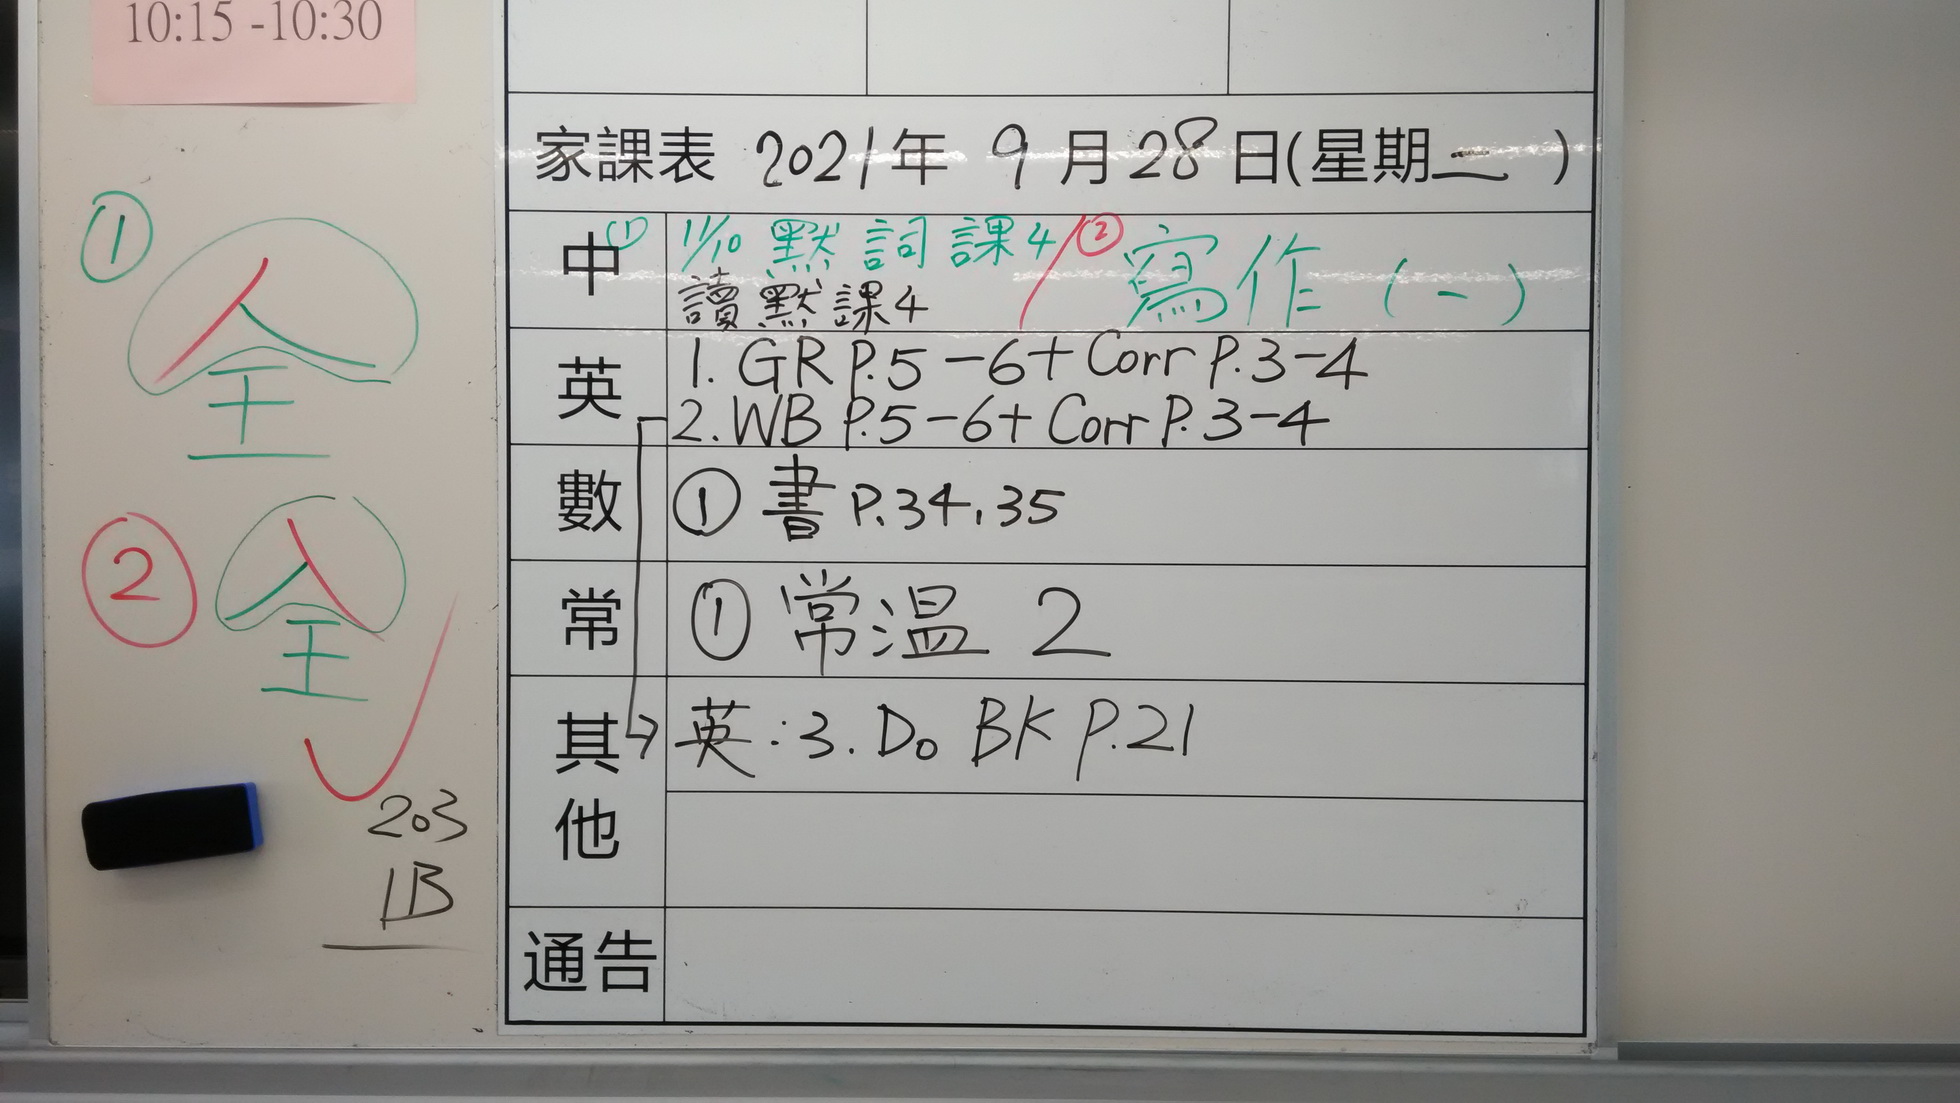 10:15 -10:30
①
全
②
全
203
1B
家課表 2021年 9月28日(星期二 )
中 (1) 11/10 默詞課4 / ② 寫作 (一)
讀默課4
英 1. GR P.5-6+Corr P.3-4
2. WB P.5-6+Corr P.3-4
數 ① 書 P.34,35
常 ① 常温 2
其他 英:3. Do BK P.21
通告